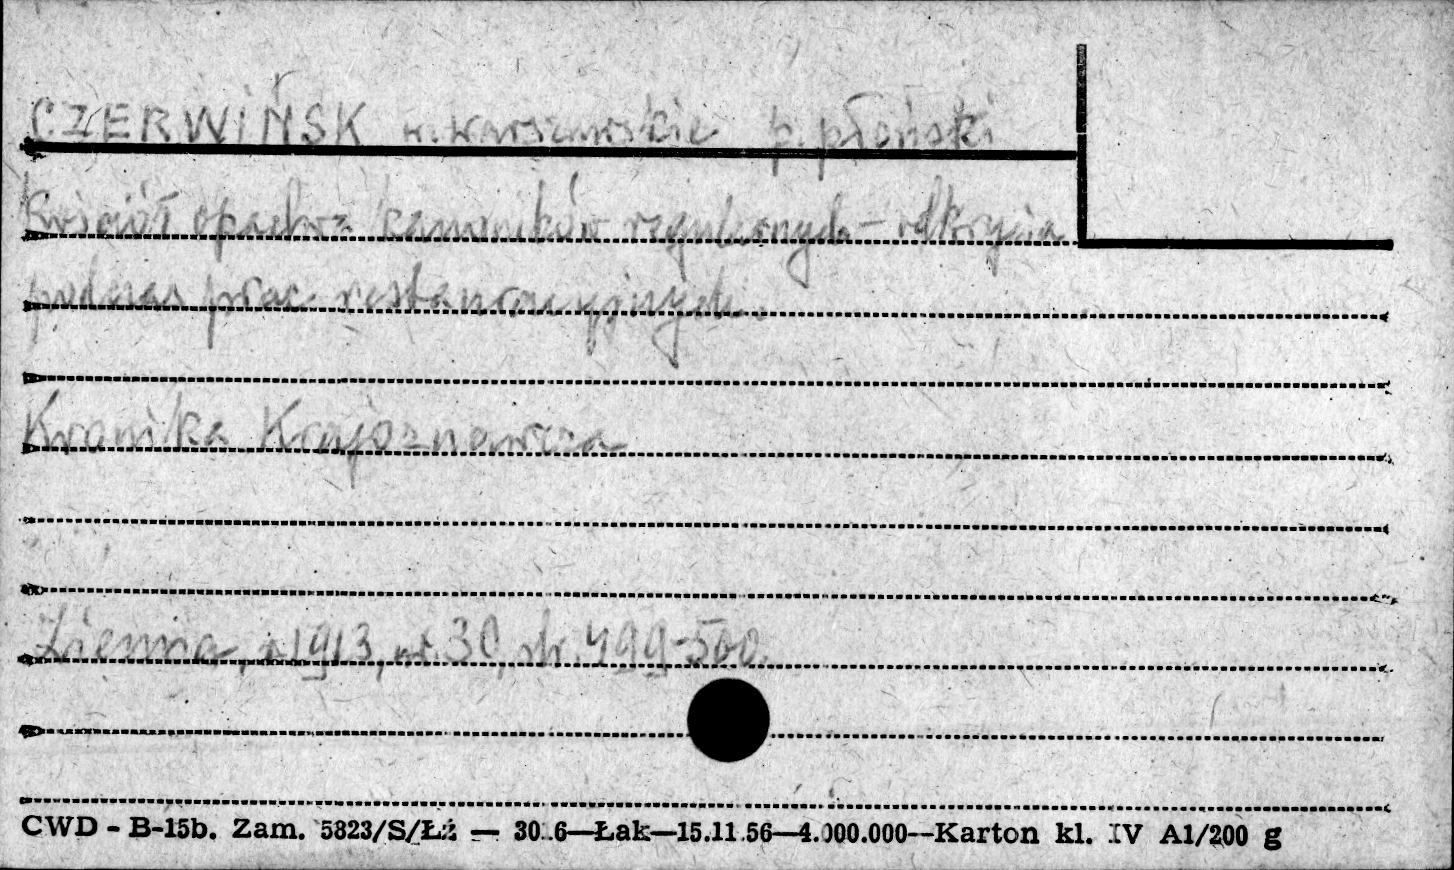 CZERWIŃSK w. warszawskie p. płoński
Kościół opactwa kanoników regularnych – odkrycia
podczas prac restauracyjnych.
Kronika Krajoznawcza
Ziemia, r. 1913, nr. 30, str. 499-500.
CWD - B-15b. Zam. 5823/S/Łź — 30.6—Łak—15.11.56—4.000.000—Karton kl. IV A1/200 g